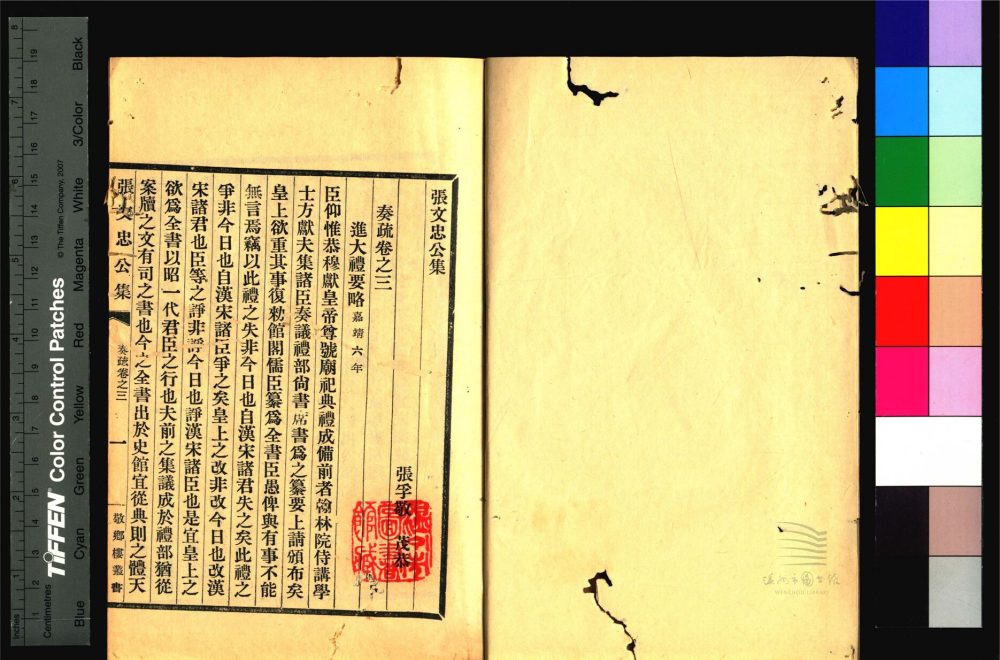 張文忠公集
奏疏卷之三
張孚敬 茂恭
進大禮要略嘉靖六年
臣仰惟恭穆獻皇帝尊號廟祀典禮成備前者翰林院侍講學
士方獻夫集諸臣奏議禮部尙書席書爲之纂要上請頒布矣
皇上欲重其事復勑館閣儒臣纂爲全書臣愚俾與有事不能
無言焉竊以此禮之失非今日也自漢宋諸君失之矣此禮之
爭非今日也自漢宋諸臣爭之矣皇上之改非改今日也改漢
宋諸君也臣等之諍非諍今日也諍漢宋諸臣也是宜皇上之
欲爲全書以昭一代君臣之行也夫前之集議成於禮部猶從
案牘之文有司之書也今之全書出於史館宜從典則之體天
張文忠公集
奏疏卷之三
一
敬鄉樓叢書
溫州市圖書館
WENZHOU LIBRARY
Inches
Centimetres
TIFFEN® Color Control Patches
© The Tiffen Company, 2007
Blue
Cyan
Green
Yellow
Red
Magenta
White
3/Color
Black